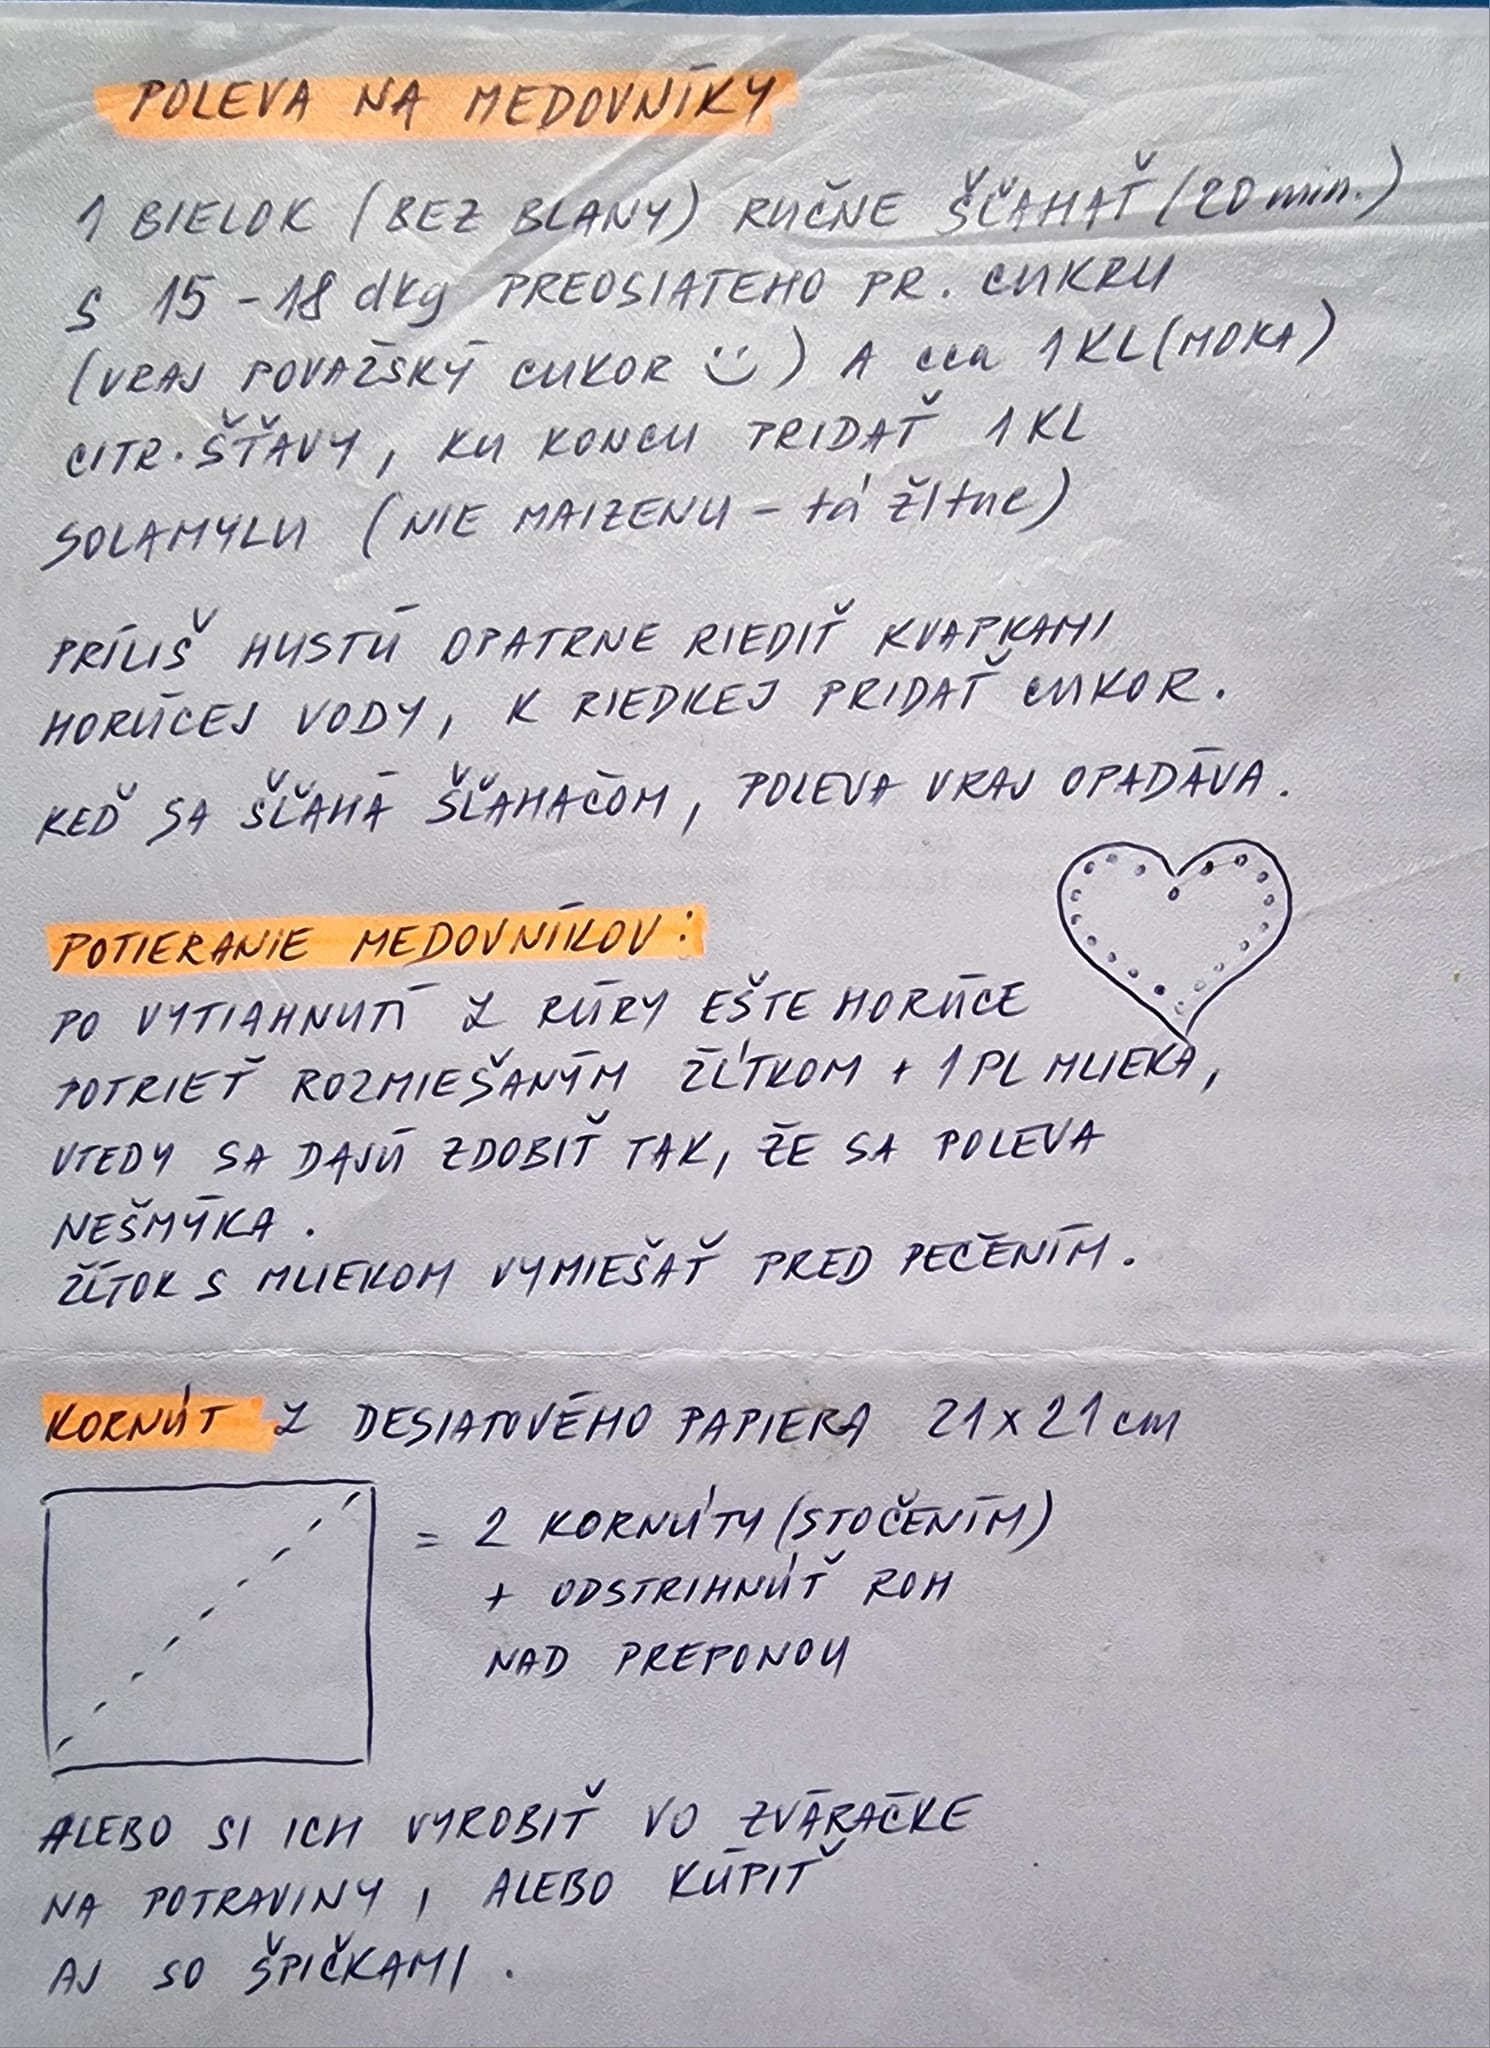 POLEVA NA MEDOVNÍKY
1 BIELOK (BEZ BLANY) RUČNE ŠĽAHAŤ (20 min.)
S 15-18 dkg PREOSIATEHO PR. CUKRU
(VRAJ POVAŽSKÝ CUKOR ☺) A cca 1 KL (MOKA)
CITR. ŠŤAVY, KU KONCU PRIDAŤ 1 KL
SOLAMYLU (NIE MAIZENU - tá žltne)
PRÍLIŠ HUSTÚ OPATRNE RIEDIŤ KVAPKAMI
HORÚCEJ VODY, K RIEDKEJ PRIDAŤ CUKOR.
KEĎ SA ŠĽAHÁ ŠĽAHAČOM, POLEVA VRAJ OPADÁVA.
POTIERANIE MEDOVNÍKOV:
PO VYTIAHNUTÍ Z RÚRY EŠTE HORÚCE
POTRIEŤ ROZMIEŠANÝM ŽĹTKOM + 1 PL MLIEKA,
VTEDY SA DAJÚ ZDOBIŤ TAK, ŽE SA POLEVA
NEŠMÝKA.
ŽĹTOK S MLIEKOM VYMIEŠAŤ PRED PEČENÍM.
KORNÚT Z DESIATOVÉHO PAPIERA 21 x 21 cm
= 2 KORNÚTY (STOČENÍM)
+ ODSTRIHNÚŤ ROH
NAD PREPONOU
ALEBO SI ICH VYROBIŤ VO ZVÁRAČKE
NA POTRAVINY, ALEBO KÚPIŤ
AJ SO ŠPIČKAMI.